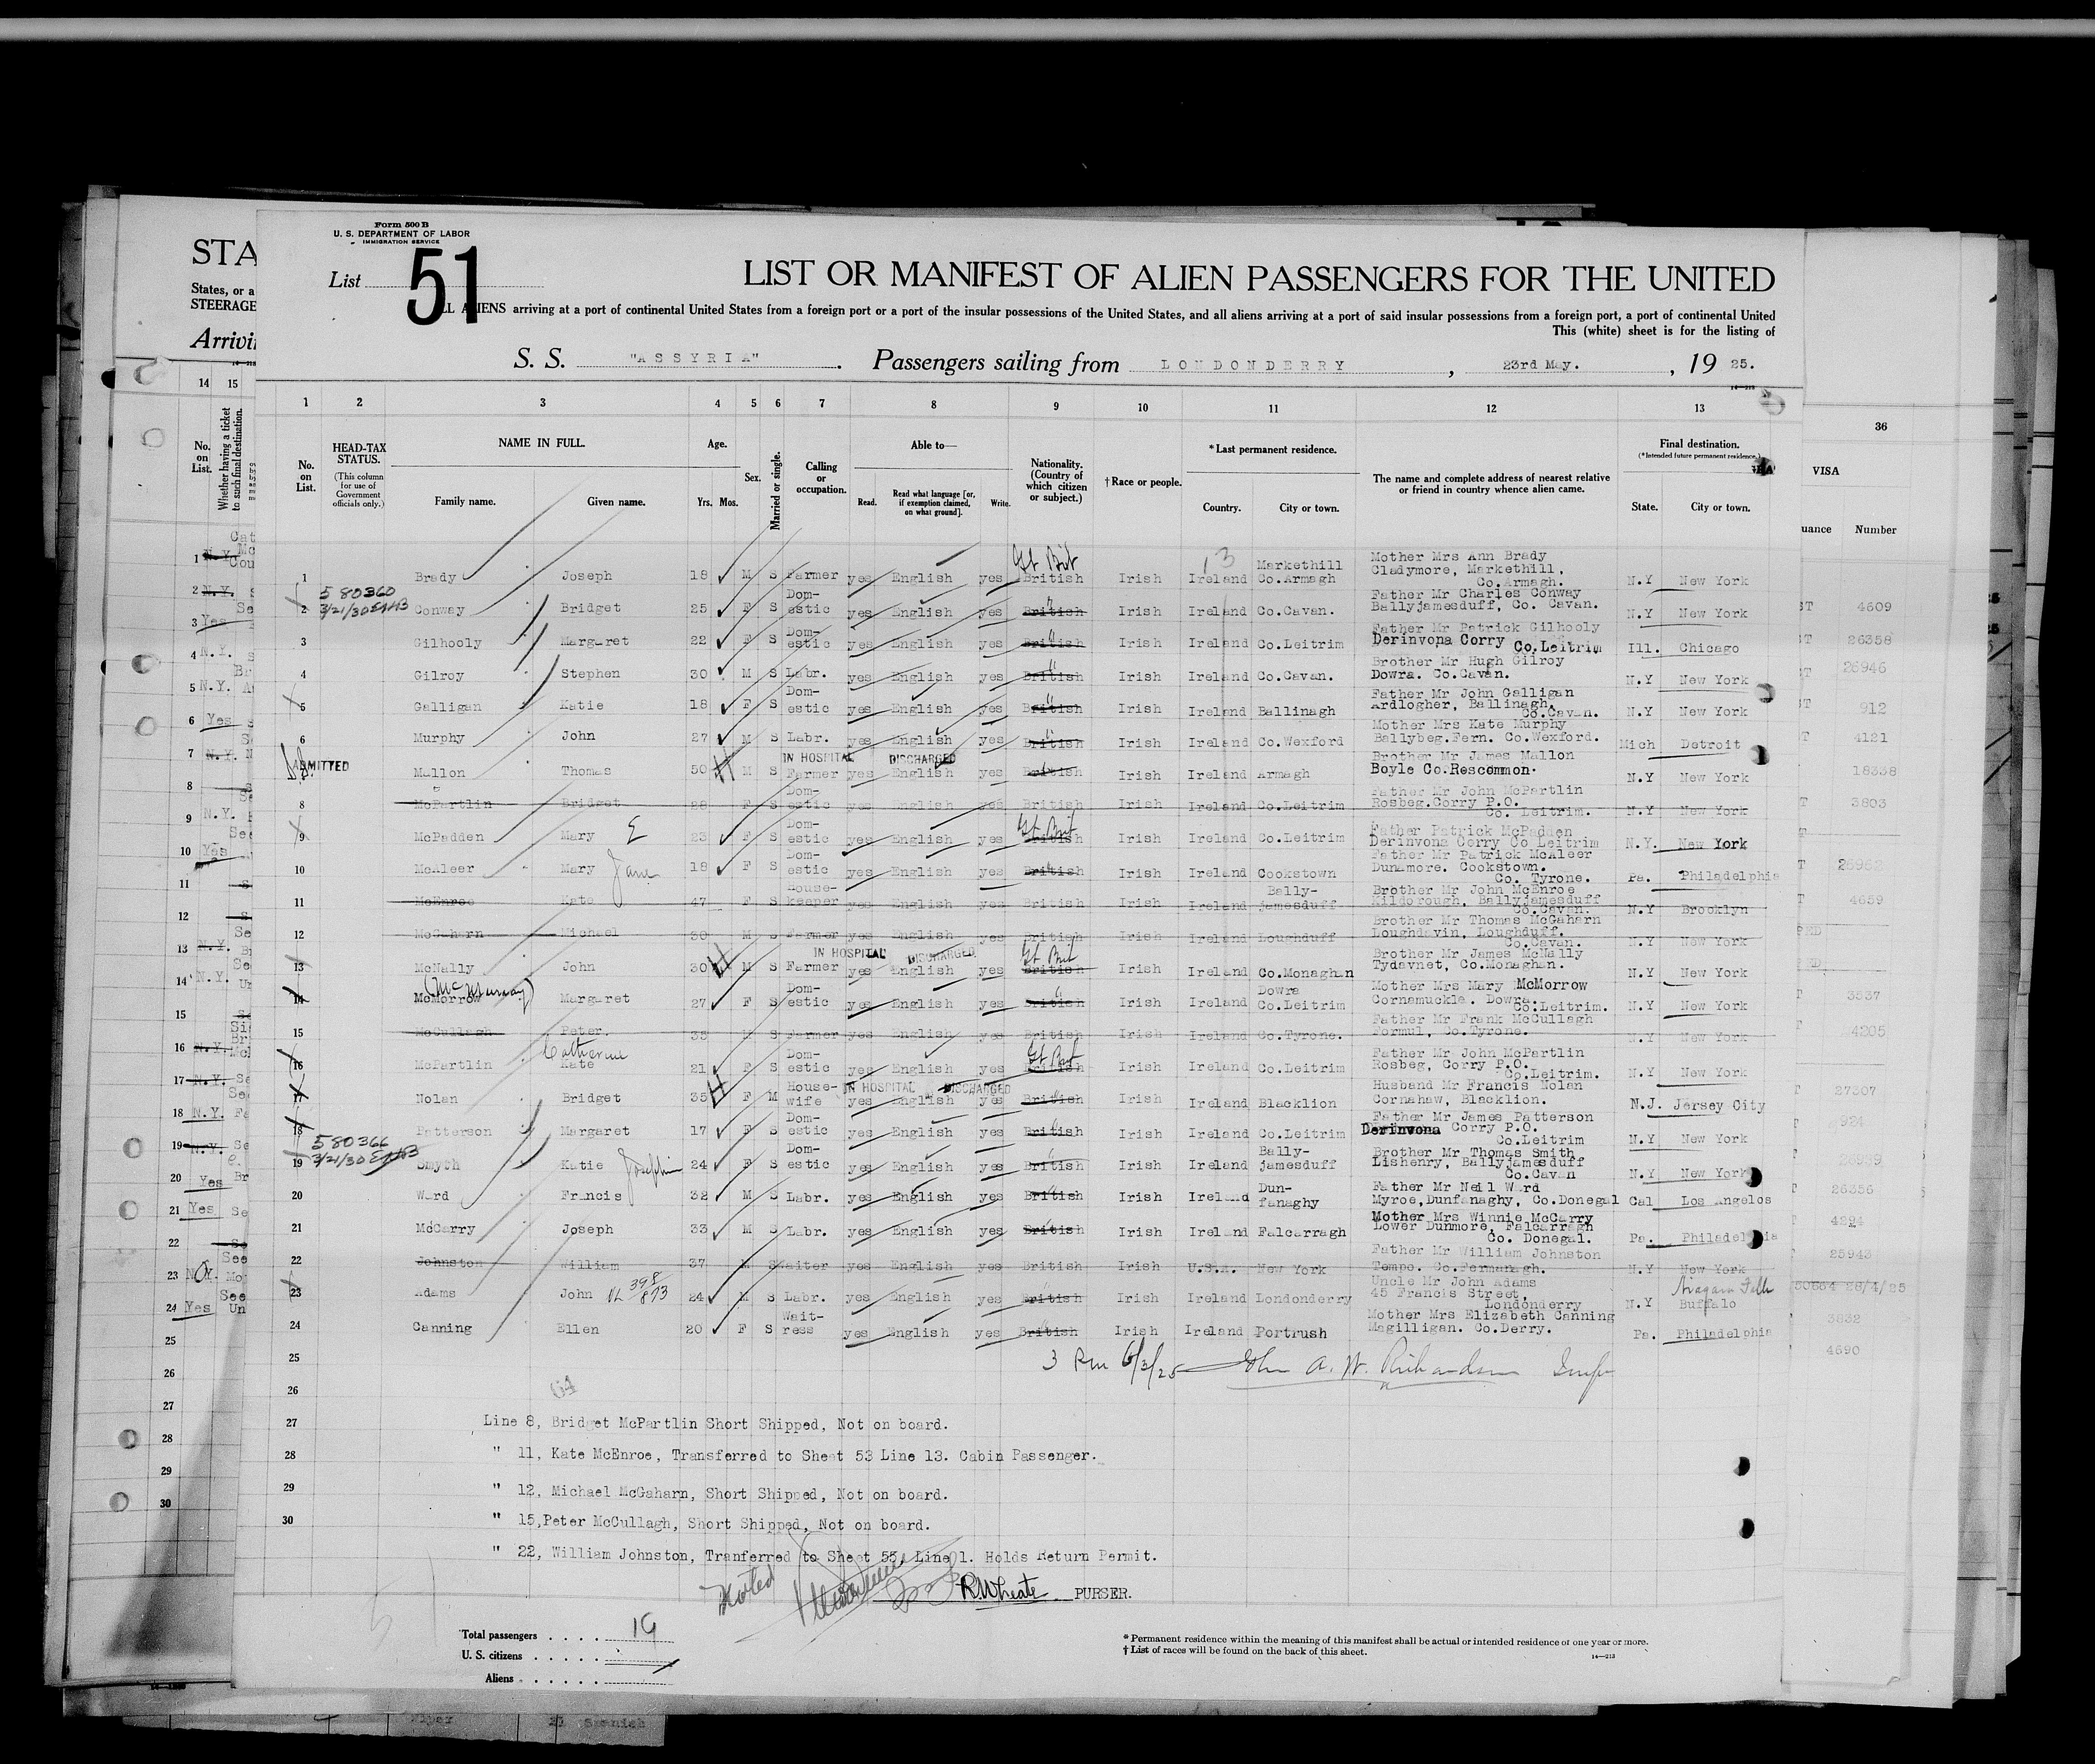 Form 500 B
U. S. DEPARTMENT OF LABOR
IMMIGRATION SERVICE
List 51
LIST OR MANIFEST OF ALIEN PASSENGERS FOR THE UNITED
ALL ALIENS arriving at a port of continental United States from a foreign port or a port of the insular possessions of the United States, and all aliens arriving at a port of said insular possessions from a foreign port, a port of continental United
This (white) sheet is for the listing of
S. S. "ASSYRIA". Passengers sailing from LONDONDERRY, 23rd May., 1925.
1 2 3 4 5 6 7 8 9 10 11 12 13
No. on List.
HEAD-TAX STATUS.
(This column for use of Government officials only.)
NAME IN FULL.
Family name. Given name.
Age.
Yrs. Mos.
Sex.
Married or single.
Calling or occupation.
Able to—
Read. Read what language [or, if exemption claimed, on what ground]. Write.
Nationality. (Country of which citizen or subject.)
†Race or people.
*Last permanent residence.
Country. City or town.
The name and complete address of nearest relative or friend in country whence alien came.
Final destination.
(*Intended future permanent residence.)
State. City or town.
1 Brady Joseph 18 M S Farmer yes English yes Gt Brit British Irish Ireland Markethill Co.Armagh Mother Mrs Ann Brady Cladymore, Markethill, Co.Armagh. N.Y New York
2 580360 3/21/30 Conway Bridget 25 F S Dom-estic yes English yes British " Irish Ireland Co.Cavan. Father Mr Charles Conway Ballyjamesduff, Co. Cavan. N.Y New York
3 Gilhooly Margaret 22 F S Dom-estic yes English yes British " Irish Ireland Co.Leitrim Father Mr Patrick Gilhooly Derinvona Corry Co.Leitrim Ill. Chicago
4 Gilroy Stephen 30 M S Labr. yes English yes British " Irish Ireland Co.Cavan. Brother Mr Hugh Gilroy Dowra. Co.Cavan. N.Y New York
5 Galligan Katie 18 F S Dom-estic yes English yes British " Irish Ireland Ballinagh Father Mr John Galligan Ardlogher, Ballinagh, Co.Cavan. N.Y New York
6 Murphy John 27 M S Labr. yes English yes British " Irish Ireland Co.Wexford Mother Mrs Kate Murphy Ballybeg.Fern. Co.Wexford. Mich Detroit
ADMITTED Mallon Thomas 50 M S IN HOSPITAL DISCHARGED Farmer yes English yes British Irish Ireland Armagh Brother Mr James Mallon Boyle Co.Roscommon. N.Y New York
8 McPartlin Bridget 28 F S Dom-estic yes English yes British Irish Ireland Co.Leitrim Father Mr John McPartlin Rosbeg.Corry P.O. Co. Leitrim. N.Y New York
9 McPadden Mary E 23 F S Dom-estic yes English yes Gt Brit British Irish Ireland Co.Leitrim Father Patrick McPadden Derinvona Corry Co Leitrim N.Y. New York
10 McAleer Mary Jane 18 F S Dom-estic yes English yes British " Irish Ireland Cookstown Father Mr Patrick McAleer Dunamore. Cookstown. Co. Tyrone. Pa. Philadelphia
11 McEnroe Kate 47 F S House-keeper yes English yes British Irish Ireland Bally-jamesduff Brother Mr John McEnroe Kildorough, Ballyjamesduff Co.Cavan. N.Y Brooklyn
12 McGaharn Michael 30 M S Farmer yes English yes British Irish Ireland Loughduff Brother Mr Thomas McGaharn Loughdavin, Loughduff. Co.Cavan. N.Y New York
13 McNally John 30 M S IN HOSPITAL DISCHARGED Farmer yes English yes Gt Brit British Irish Ireland Co.Monaghan Brother Mr James McNally Tydavnet, Co.Monaghan. N.Y New York
14 (McMurray) McMorrow Margaret 27 F S Dom-estic yes English yes British " Irish Ireland Dowra Co.Leitrim Mother Mrs Mary McMorrow Cornamuckla. Dowra. Co.Leitrim. N.Y New York
15 McCullagh Peter. 35 M S Farmer yes English yes British Irish Ireland Co.Tyrone. Father Mr Frank McCullagh Formul, Co.Tyrone. N.Y New York
16 McPartlin Catherine Kate 21 F S Dom-estic yes English yes Gt Brit British Irish Ireland Co.Leitrim Father Mr John McPartlin Rosbeg, Corry P.O. Co.Leitrim. N.Y New York
17 Nolan Bridget 35 F M House-wife IN HOSPITAL DISCHARGED yes English yes British " Irish Ireland Blacklion Husband Mr Francis Nolan Cornahaw, Blacklion. N.J. Jersey City
18 Patterson Margaret 17 F S Dom-estic yes English yes British " Irish Ireland Co.Leitrim Father Mr James Patterson Derinvona Corry P.O. Co.Leitrim N.Y New York
19 580366 3/21/30 Smyth Katie Josephine 24 F S Dom-estic yes English yes British " Irish Ireland Bally-jamesduff Brother Mr Thomas Smith Lishenry, Ballyjamesduff Co.Cavan N.Y New York
20 Ward Francis 32 M S Labr. yes English yes British " Irish Ireland Dun-fanaghy Father Mr Neil Ward Myroe,Dunfanaghy, Co.Donegal Cal Los Angelos
21 McCarry Joseph 33 M S Labr. yes English yes British " Irish Ireland Falcarragh Mother Mrs Winnie McCarry Lower Dunmore, Falcarragh Co. Donegal. Pa. Philadelphia
22 Johnston William 37 M S Waiter yes English yes British Irish U.S.A. New York Father Mr William Johnston Tempo. Co.Fermanagh. N.Y New York
23 Adams John VL 398/873 24 M S Labr. yes English yes British " Irish Ireland Londonderry Uncle Mr John Adams 45 Francis Street, Londonderry N.Y Niagara Falls Buffalo
24 Canning Ellen 20 F S Wait-ress yes English yes British Irish Ireland Portrush Mother Mrs Elizabeth Canning Magilligan. Co.Derry. Pa. Philadelphia
25 3 Pm 6/3/25 John A. W. Richardson Insp
26
27 Line 8, Bridget McPartlin Short Shipped, Not on board.
28 " 11, Kate McEnroe, Transferred to Sheet 53 Line 13. Cabin Passenger.
29 " 12, Michael McGaharn, Short Shipped, Not on board.
30 " 15,Peter McCullagh, Short Shipped, Not on board.
" 22, William Johnston, Tranferred to Sheet 55, Line 1. Holds Return Permit.
Noted
RWheate PURSER.
Total passengers . . . . 19
U. S. citizens . . . . .
Aliens . . . . . .
* Permanent residence within the meaning of this manifest shall be actual or intended residence of one year or more.
† List of races will be found on the back of this sheet.
14—213
STA
States, or a
STEERAGE
Arrivi
14 15
No. on List.
Whether having a ticket to such final destination.
36
VISA
uance Number
4609
26358
26946
912
4121
18338
3803
26962
4659
3537
4205
27307
924
26939
26356
4294
25943
28/4/25
3832
4690